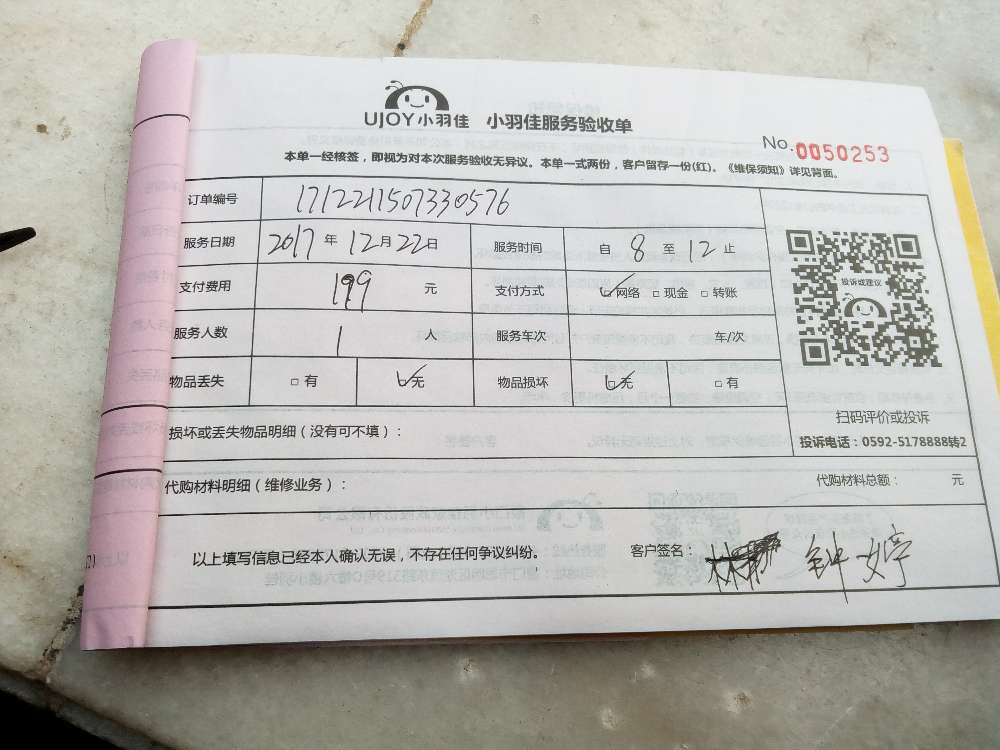 UJOY小羽佳 小羽佳服务验收单
No.0050253
本单一经核签，即视为对本次服务验收无异议。本单一式两份，客户留存一份(红)。《维保须知》详见背面。
订单编号 171221507330576
服务日期 2017年12月22日 服务时间 自8至12止
支付费用 199元 支付方式 ☑网络 □现金 □转账
投诉或建议
服务人数 1人 服务车次 车/次
物品丢失 □有 ☑无 物品损坏 ☑无 □有
扫码评价或投诉
投诉电话：0592-5178888转2
损坏或丢失物品明细（没有可不填）：
代购材料明细（维修业务）： 代购材料总额： 元
以上填写信息已经本人确认无误，不存在任何争议纠纷。 客户签名： 钟婷